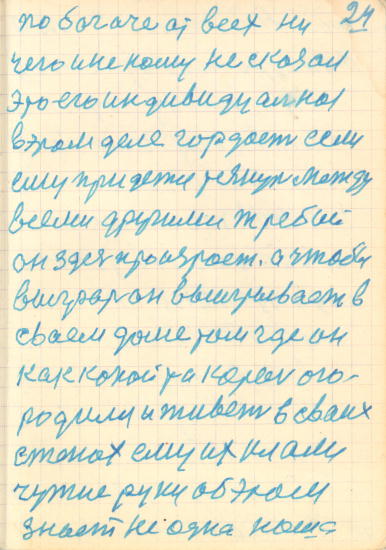 24
по богаче от всех ни
чего и не кому не сказал
это его индивидуалная
в этом деле гордость если
ему придетже тянут между
всеми другими жребый
он здея проиграет. а чтобы
выиграл он выигрывает в
сваем доме там где он
как какой та карол ого-
родили и живет в сваих
стенах ему их клали
чужие руки об этом
знает не одна наша